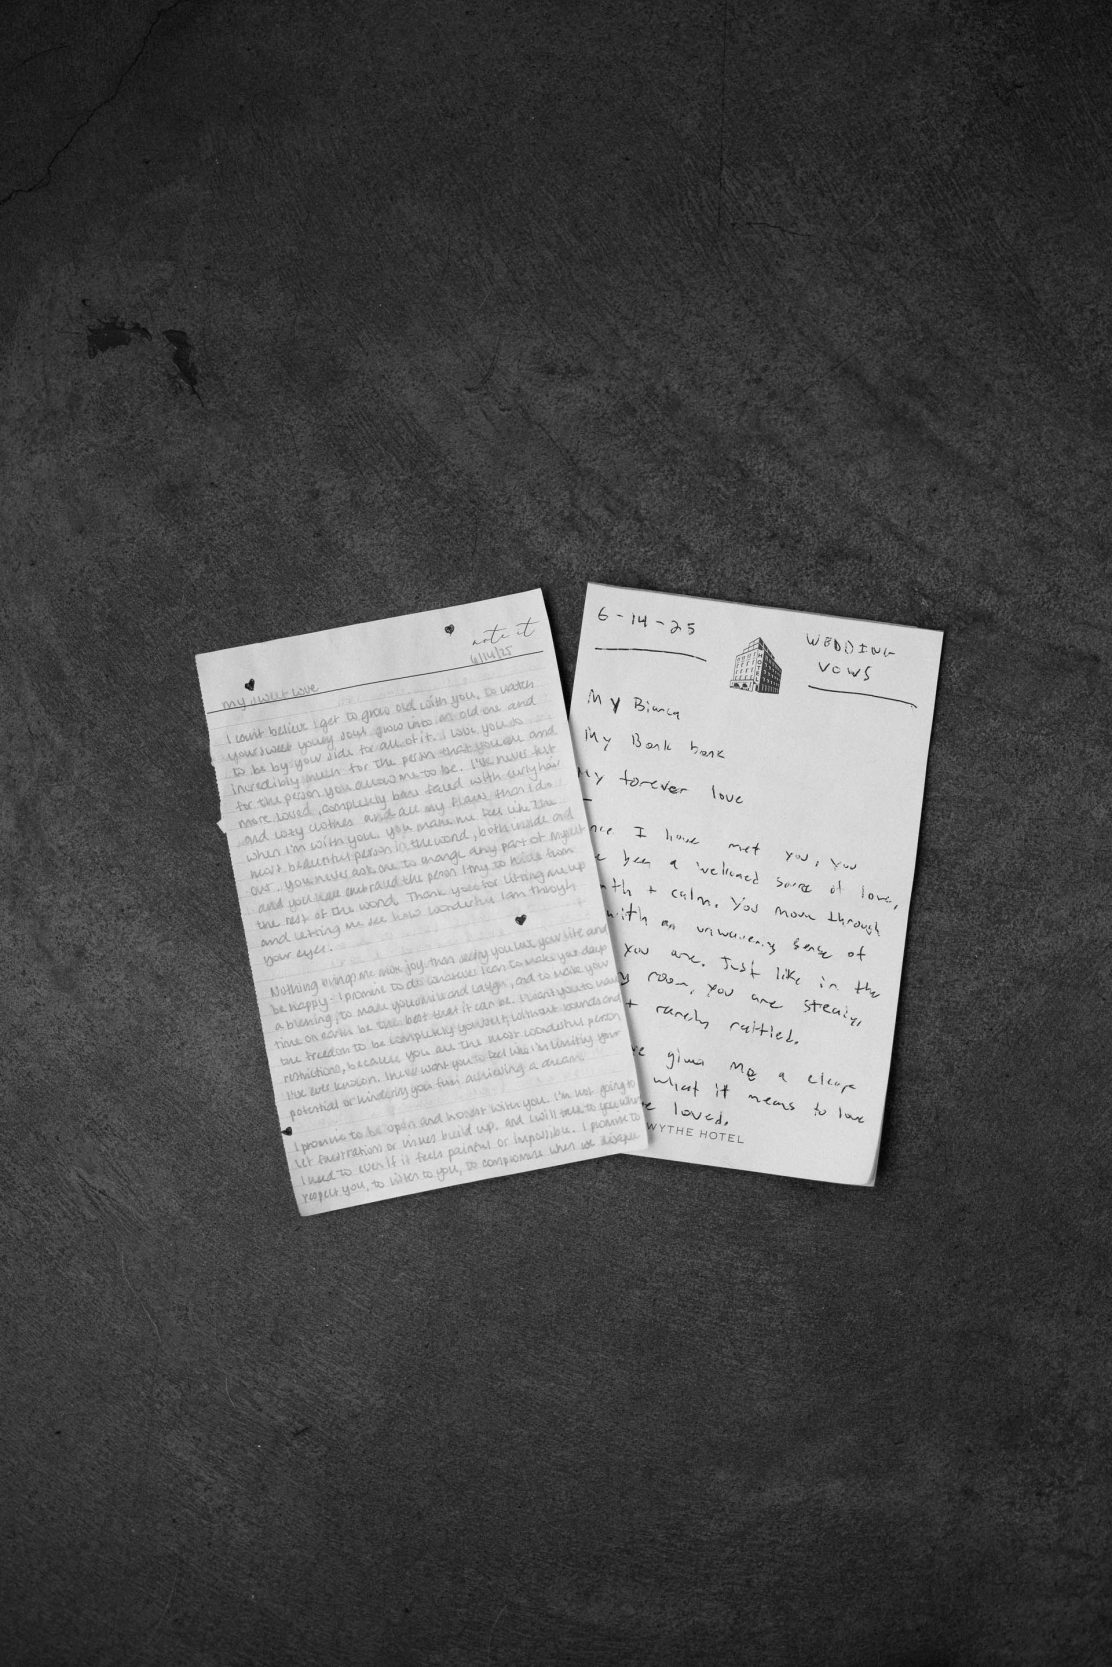 note it
6/14/25
my sweet love
I can't believe I get to grow old with you, to watch
your sweet young soul grow into an old one and
to be by your side for all of it. I love you so
incredibly much for the person that you are and
for the person you allow me to be. I've never felt
more loved, completely bare faced with curly hair
and cozy clothes and all my flaws than I do
when I'm with you. you make me feel like the
most beautiful person in the world, both inside and
out. you never ask me to change any part of myself
and you have embraced the person I try to hide from
the rest of the world. Thank you for lifting me up
and letting me see how wonderful I am through
your eyes.
Nothing brings me more joy than seeing you live your life and
be happy. I promise to do whatever I can to make your days
a blessing, to make you smile and laugh, and to make your
time on earth be the best that it can be. I want you to have
the freedom to be completely yourself, without bounds and
restrictions, because you are the most wonderful person
I've ever known. I never want you to feel like I'm limiting your
potential or hindering you from achieving a dream.
I promise to be open and honest with you. I'm not going to
let frustrations or issues build up, and I will talk to you when
I need to even if it feels painful or impossible. I promise to
respect you, to listen to you, to compromise when we disagree
6-14-25
WEDDING
VOWS
HOTEL
My Bianca
My Bonk bonk
My forever love
I have met you, you
been a welcomed source of love,
+ calm. You move through
with an unwavering sense of
you are. Just like in the
room, you are steady,
+ rarely rattled.
gives me a clear
what it means to love
loved.
WYTHE HOTEL